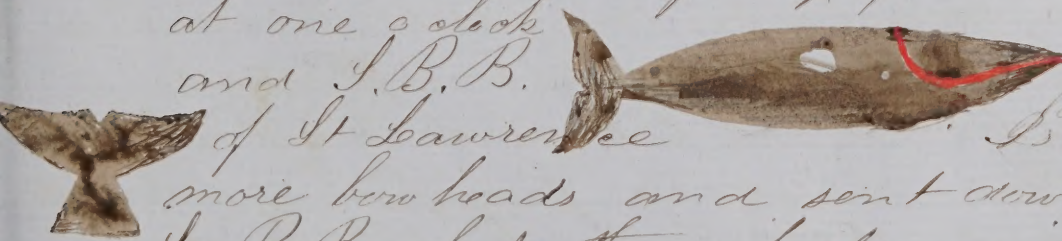 at one oclock
and S. B. B.
of St Lawrence Is
more bowheads and sent down